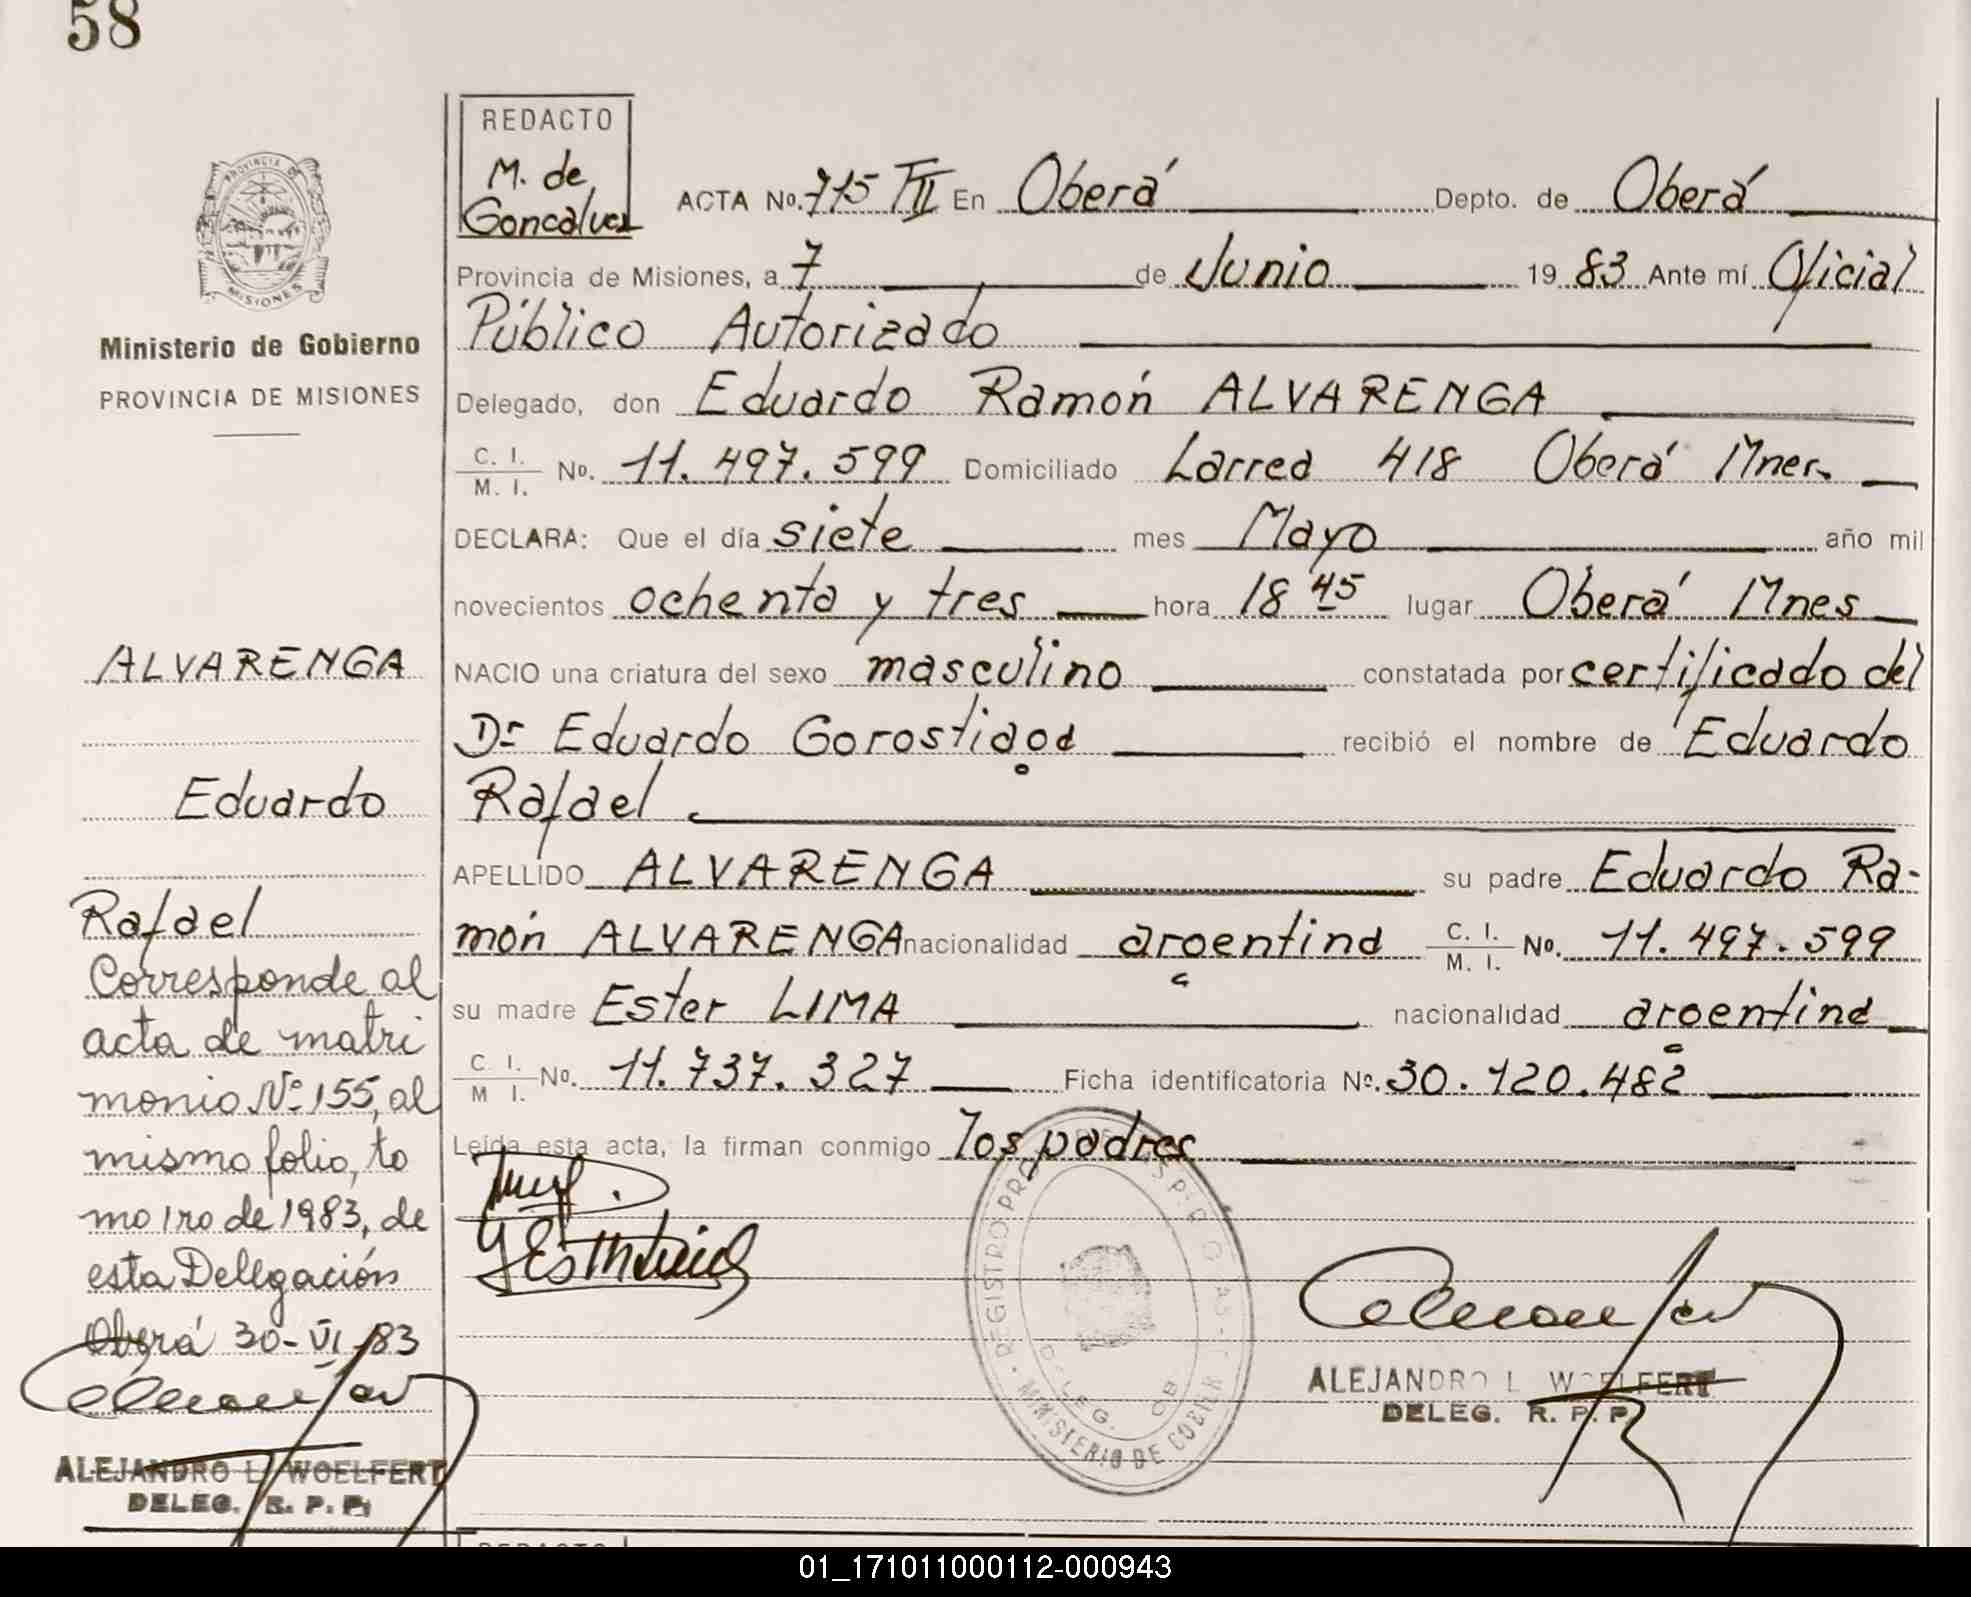 58
REDACTO
M. de
Goncalvez
ACTA No. 715 TII En Oberá Depto. de Oberá
Provincia de Misiones, a 7 de Junio 19 83 Ante mí Oficial
Público Autorizado
Delegado, don Eduardo Ramón ALVARENGA
C. I.
M. I. No. 11.497.599 Domiciliado Larrea 418 Oberá Mnes.
DECLARA: Que el día siete mes Mayo año mil
novecientos ochenta y tres hora 18 45 lugar Oberá Mnes
NACIO una criatura del sexo masculino constatada por certificado del
Dr Eduardo Gorostiaga recibió el nombre de Eduardo
Rafael
APELLIDO ALVARENGA su padre Eduardo Ra-
món ALVARENGA nacionalidad argentina C. I.
M. I. No. 11.497.599
su madre Ester LIMA nacionalidad argentina
C. I.
M I. No. 11.737.327 Ficha identificatoria No. 30.120.482
Leída esta acta, la firman conmigo los padres
MISIONES
Ministerio de Gobierno
PROVINCIA DE MISIONES
ALVARENGA
Eduardo
Rafael
Corresponde al
acta de matri
monio Nº 155, al
mismo folio, to
mo 1ro de 1983, de
esta Delegación
Oberá 30-VI-83
ALEJANDRO L. WOELFERT
DELEG. R. P. P.
REGISTRO
MINISTERIO DE
DELEG.
ALEJANDRO L WOELFERT
DELEG. R. P. P.
01_171011000112-000943